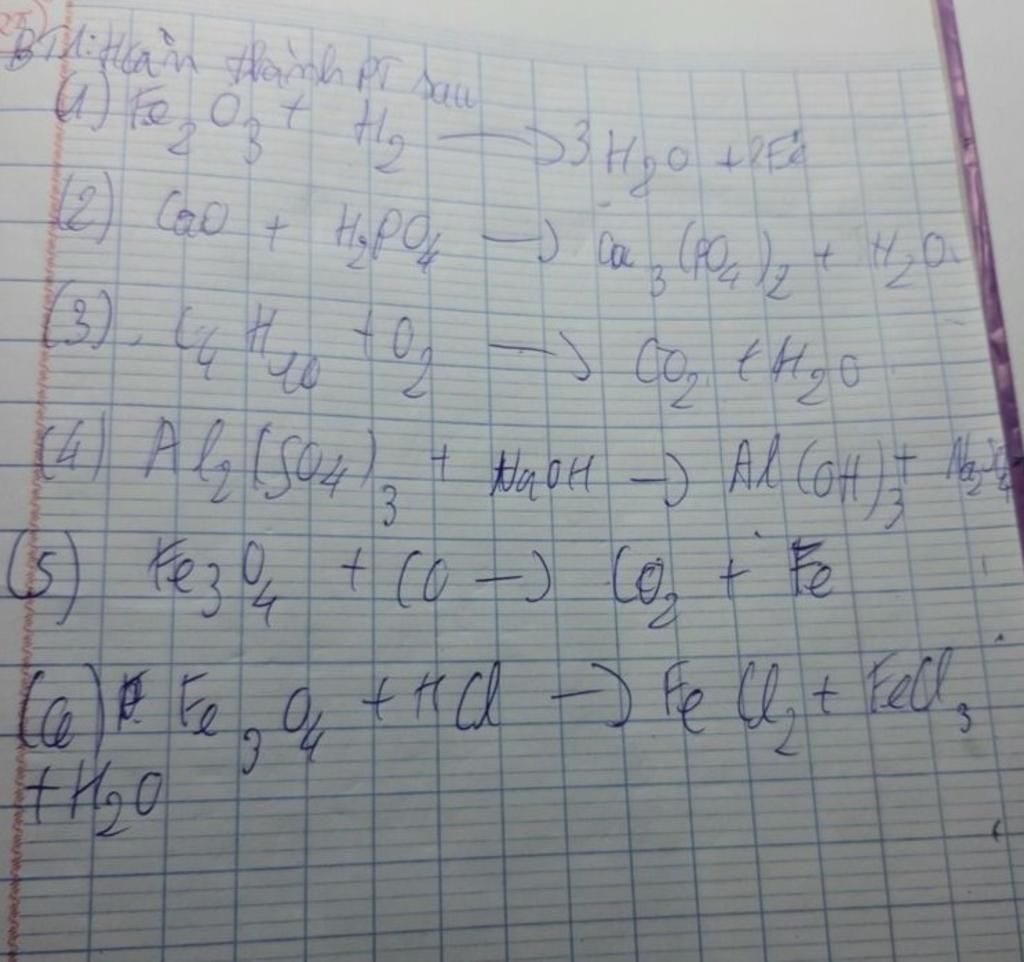 BT1: Hoàn thành PT sau
(1) Fe₂O₃ + H₂ → 3H₂O + 2Fe
(2) CaO + H₂PO₄ → Ca₃(PO₄)₂ + H₂O
(3) C₄H₁₀ + O₂ → CO₂ + H₂O
(4) Al₂(SO₄)₃ + NaOH → Al(OH)₃ + Na₂SO₄
(5) Fe₃O₄ + CO → CO₂ + Fe
(6) Fe₃O₄ + HCl → FeCl₂ + FeCl₃
+ H₂O